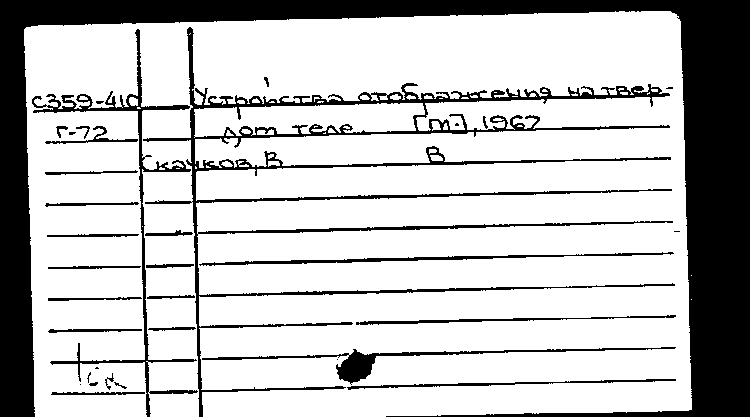 С359-410 Устройства отображения на твер-
Г-72 дом теле. [М.], 1967
Скачков, В В